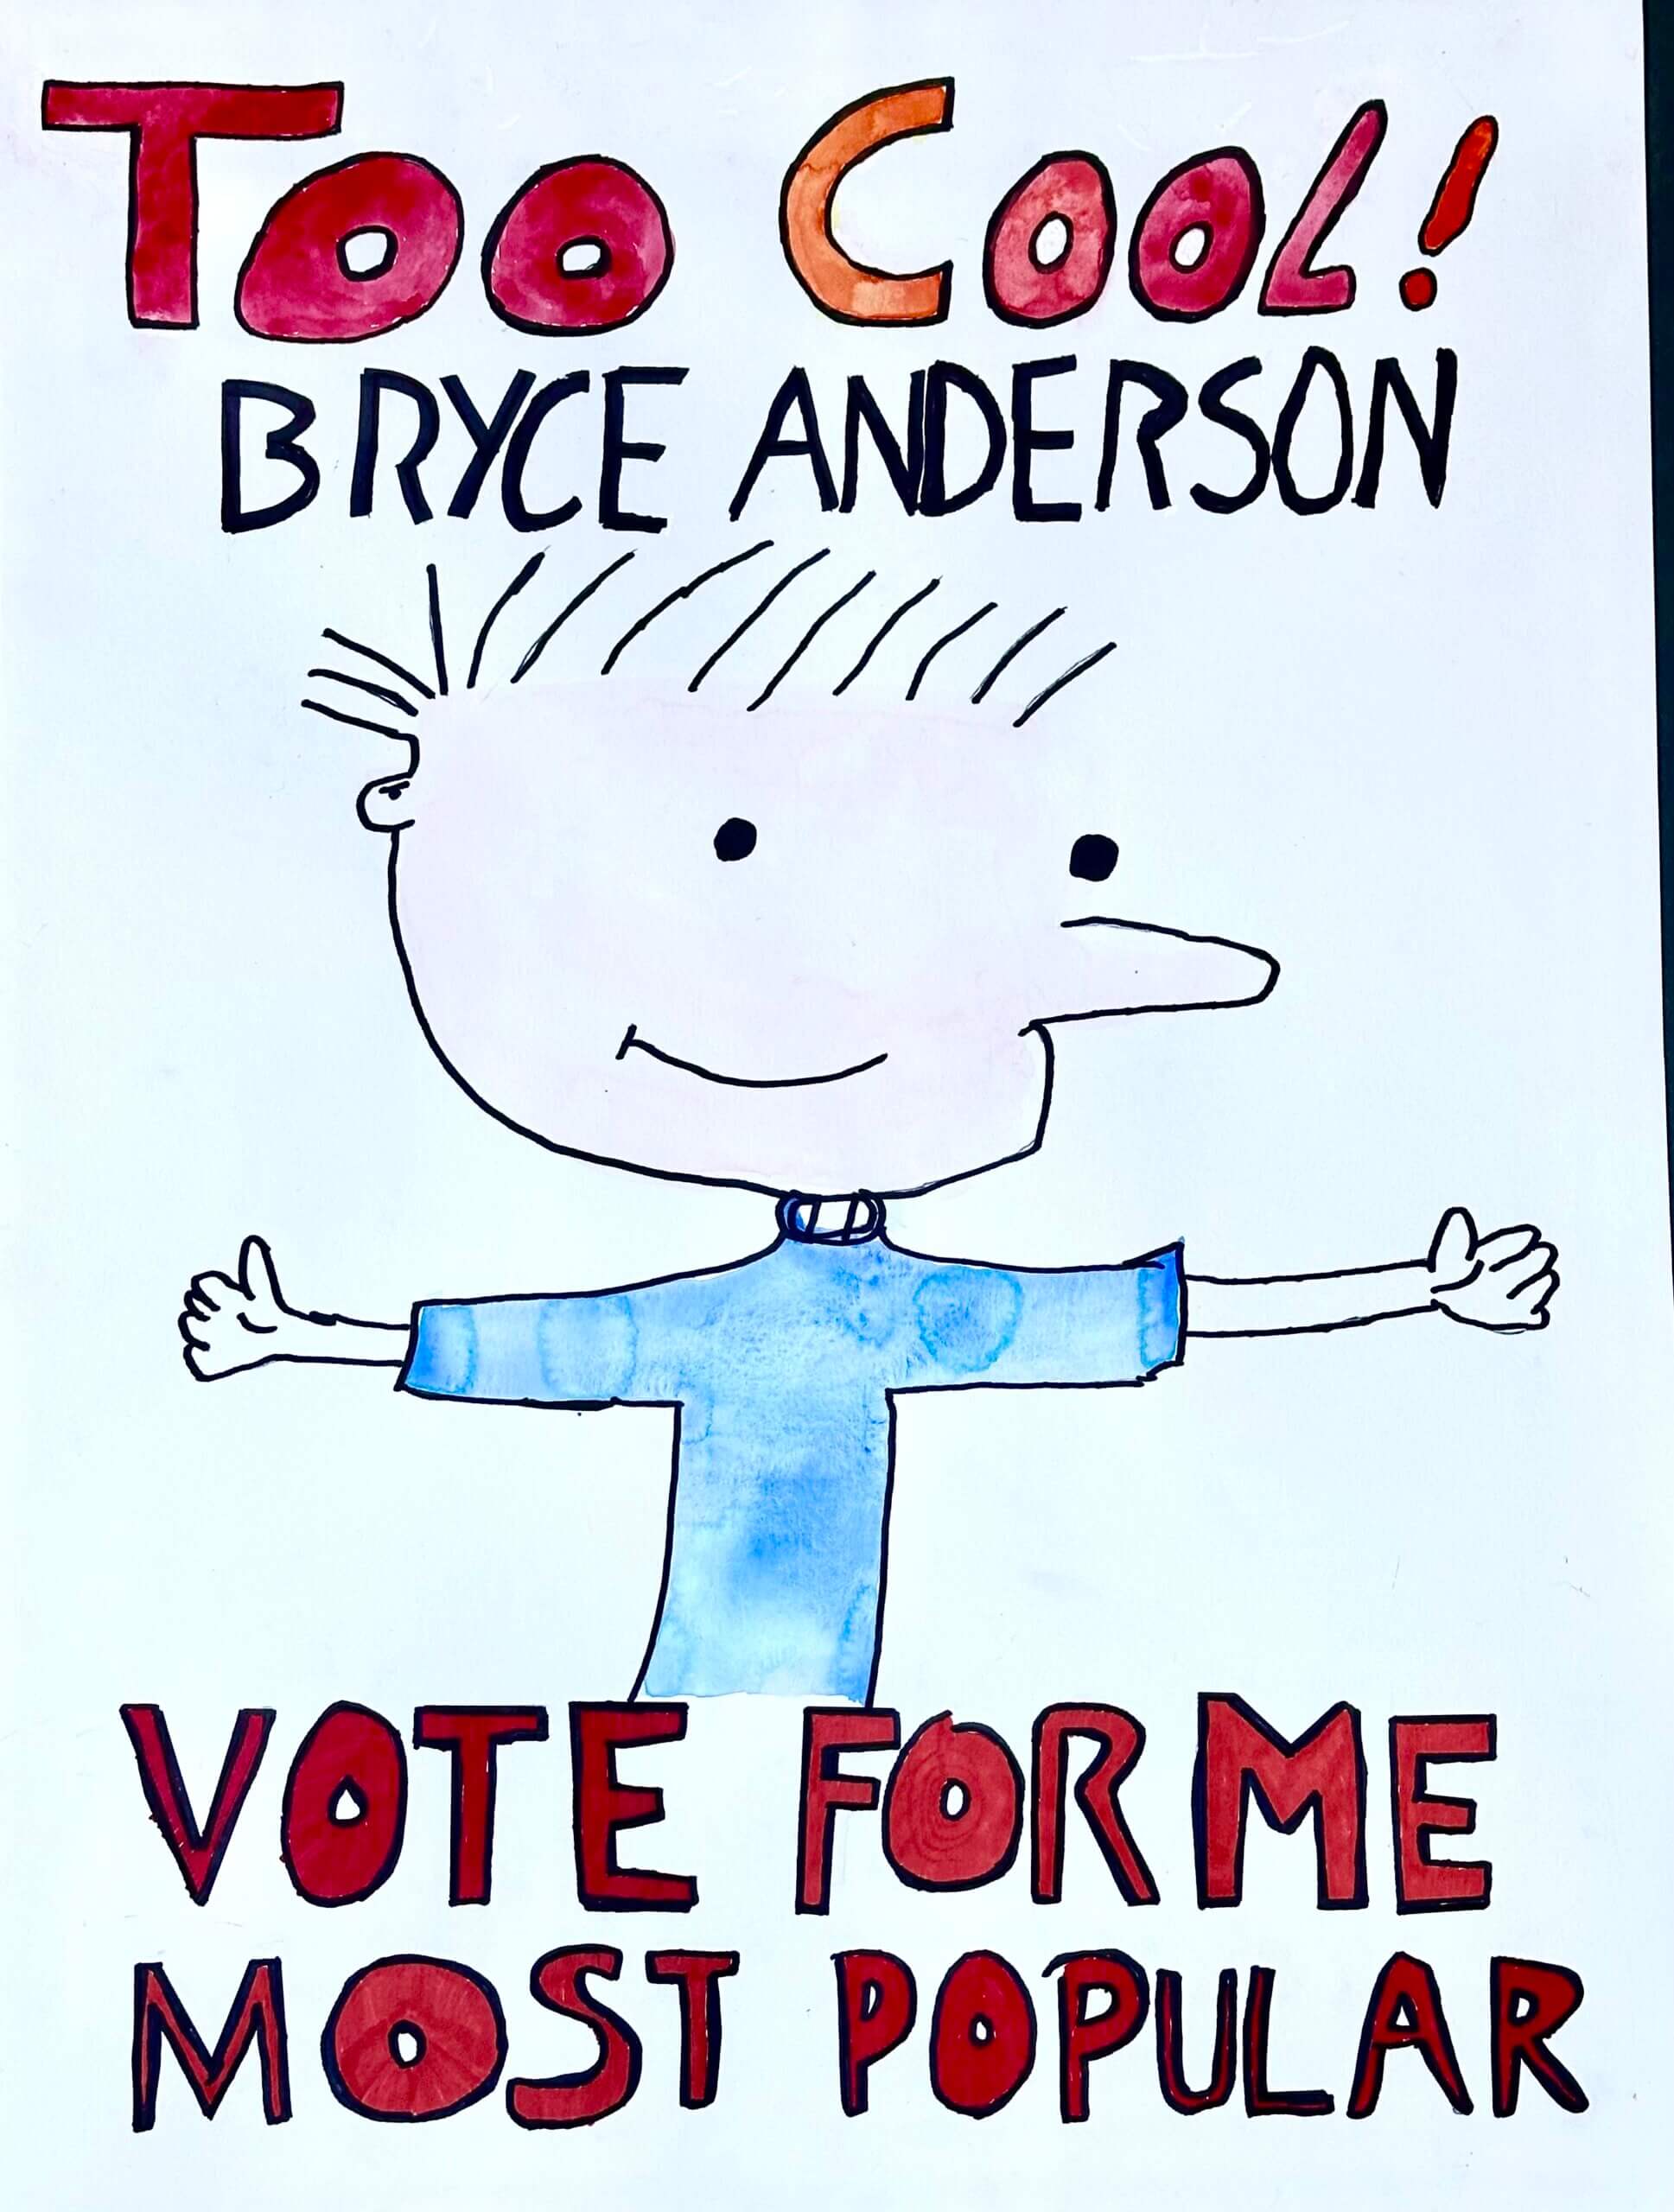 Too Cool!
BRYCE ANDERSON
VOTE FOR ME
MOST POPULAR